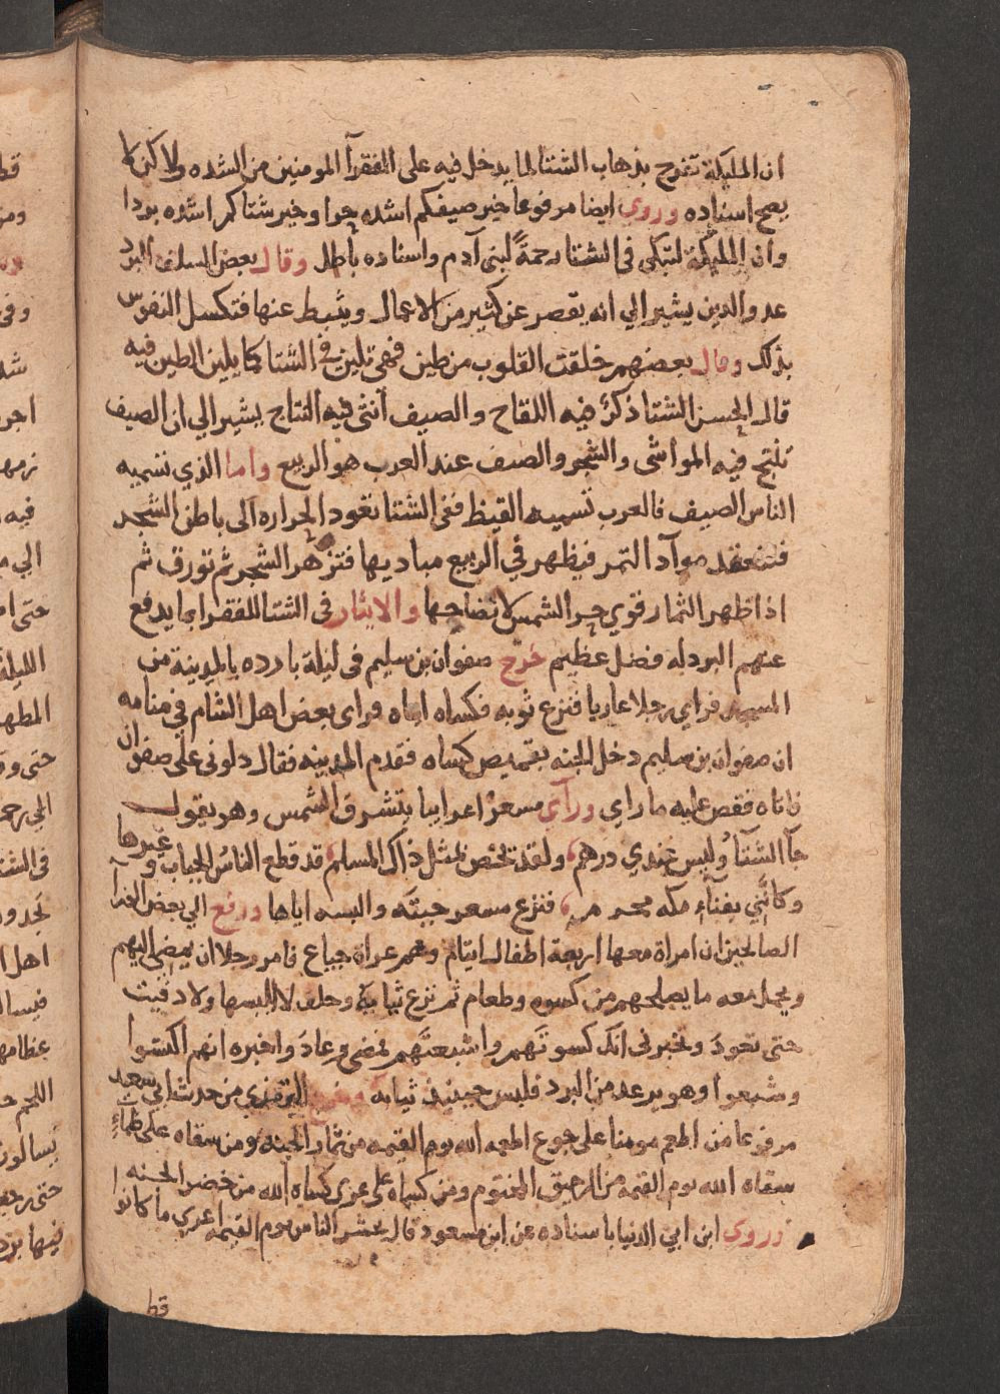 ان المليكة تفرح بذهاب الشتا لما يدخل فيه على الفقرآ المومنين من الشده ولاكن لا
يصح اسناده وروي ايضا مرفوعا خير صيفكم اشده حرا وخير شتاكم اشده بردا
وان المليكة لتبكى فى الشتا رحمةً لبنى آدم واسناده باطل وقال بعض السلف البرد
عدو الدين يشير الي انه يقصر عن كثير من الاعمال ويثبط عنها فتكسل النفوس
بذلك وقال بعضهم خلقت القلوب من طين فهى تلين في الشتا كما يلين الطين فيه
قال الحسن الشتا ذكرٌ فيه اللقاح والصيف أنثى فيه النتاج يشير الي ان الصيف
تنتج فيه المواشى والشجر والصيف عند العرب هو الربيع واما الذي تسميه
الناس الصيف فالعرب تسميه القيظ ففى الشتا تغود الحراره الى باطن الشجر
فتنعقد موآد الثمر فيظهر في الربيع مباديها فتزهر الشجر ثم تورق ثم
اذا ظهر الثمار قوي حر الشمس لانضاجها والايثار فى الشتا للفقرا بما يدفع
عنهم البرد له فضل عظيم خرج صفوان بن سليم فى ليلة بارده بالمدينة من
المسجد فراي رجلا عاريا فنزع ثوبه فكساه اياه فراى بعض اهل الشام في منامه
ان صفوان بن سليم دخل الجنه بقميص كساه فقدم المدينه فقال دلونى على صفوان
فاتاه فقص عليه ما راي ورآي مسعر اعرابيا يتشرق الشمس وهو يقول
جآ الشتآُ وليس عندي درهم ولقد تخص بمثل ذاك المسلم قد قطع الناسُ الجباب وغيرها
وكاننى بفنآءِ مكه محرم فنزع مسعر جبتَه والبسه اياها ورفع الي بعض الوزرآ
الصالحين ان امراة معها اربعة اطفال ايتام وهم عراة جياع فامر رجلا ان يمضى اليهم
ويحمل معه ما يصلحهم من كسوه وطعام ثم نزع ثيابهُ وحلف لا البسها ولا دفيت
حتى تعودَ وتخبرنى انك كسوتَهم واشبعتَهم فمضى وعادَ واخبره انهم اكتسَوا
وشبعوا وهو يرعد من البرد فلبس حينيذ ثيابه وخرج الترمذي من حديث ابي سعيد
مرفوعا من اطعم مومنا على جوع اطعمه الله يوم القيمه من ثمار الجنه ومن سقاه على ظماءٍ
سقاه الله يوم القيمه من الرحيق المختوم ومن كساه على عرى كساه الله من خضر الجنه
وروي ابن ابي الدنيا باسناده عن ابن مسعود قال يحشر الناس يوم القيمه اعرى ما كانوا
قط